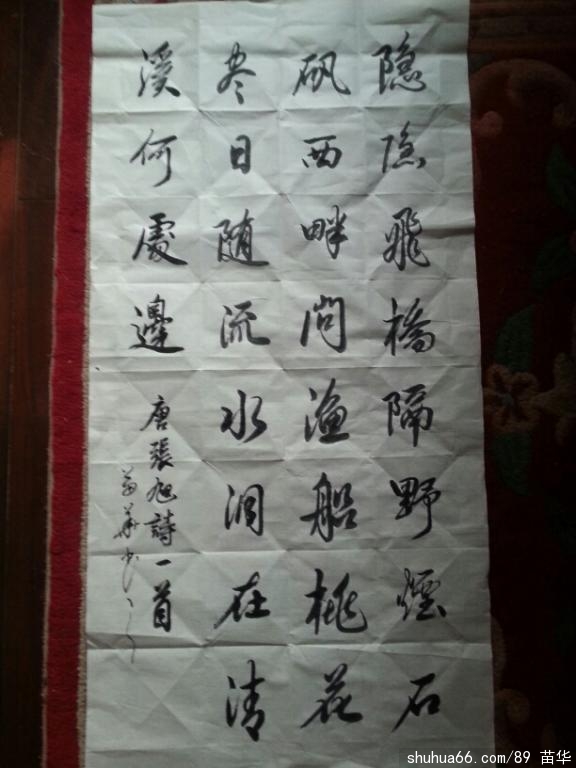 隐隐飛橋隔野煙石
矶西畔问渔船桃花
尽日随流水洞在清
溪何處邊
唐張旭詩一首
苗華书
shuhua66.com/89 苗华